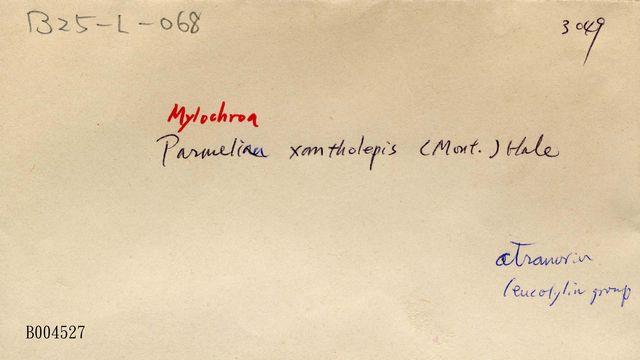 B25-L-068
3049
Mylochroa
Parmelina xantholepis (Mont.) Hale
atranorin
leucotylin group
B004527